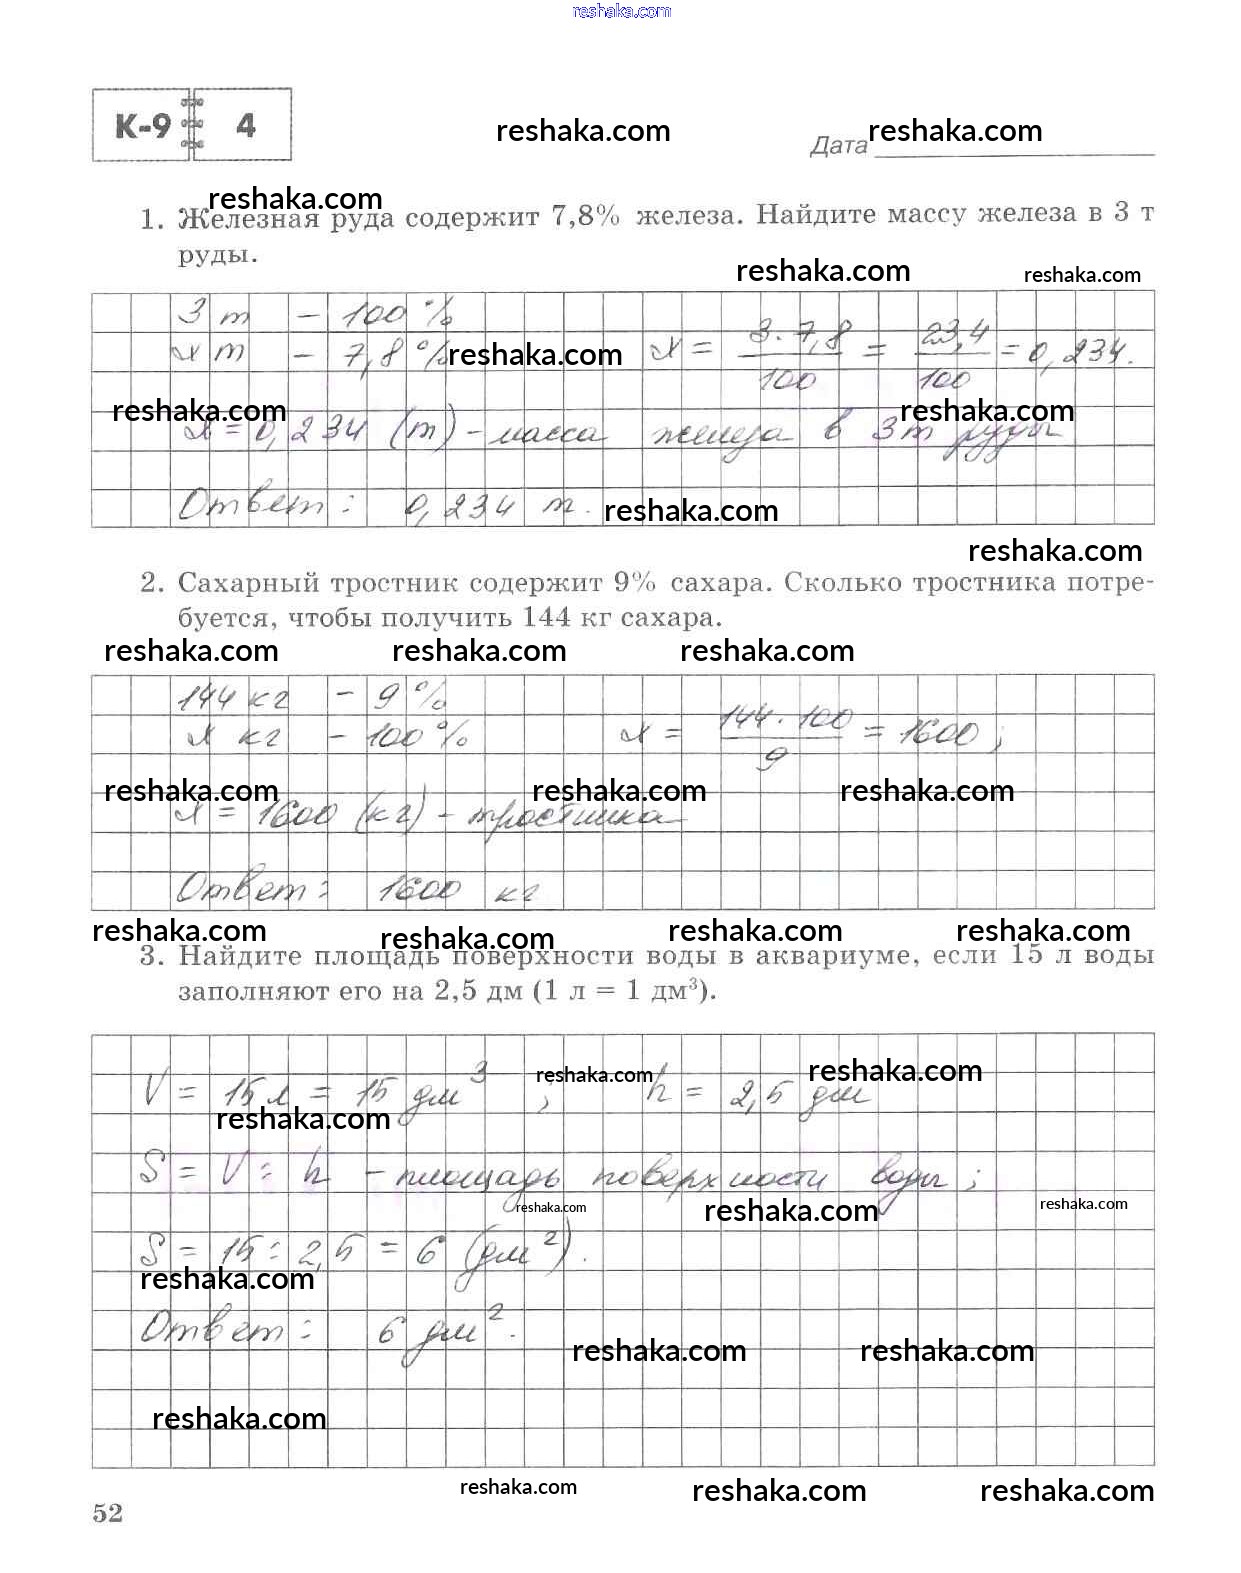 reshaka.com
К-9 4
reshaka.com
Дата reshaka.com
reshaka.com
1. Железная руда содержит 7,8% железа. Найдите массу железа в 3 т
руды.
reshaka.com reshaka.com
3 т – 100 %
x т – 7,8 % reshaka.com x = 3·7,8/100 = 23,4/100 = 0,234.
reshaka.com reshaka.com
x = 0,234 (т) – масса железа в 3т руды
Ответ: 0,234 т. reshaka.com
reshaka.com
2. Сахарный тростник содержит 9% сахара. Сколько тростника потре-
буется, чтобы получить 144 кг сахара.
reshaka.com reshaka.com reshaka.com
144 кг – 9 %
x кг – 100 % x = 144·100/9 = 1600;
reshaka.com reshaka.com reshaka.com
x = 1600 (кг) – тростника
Ответ: 1600 кг
reshaka.com reshaka.com reshaka.com reshaka.com
3. Найдите площадь поверхности воды в аквариуме, если 15 л воды
заполняют его на 2,5 дм (1 л = 1 дм³).
reshaka.com reshaka.com
V = 15 л = 15 дм³ ; h = 2,5 дм
reshaka.com
S = V : h – площадь поверхности воды;
reshaka.com reshaka.com reshaka.com
S = 15 : 2,5 = 6 (дм²).
reshaka.com
Ответ: 6 дм².
reshaka.com reshaka.com
reshaka.com
reshaka.com reshaka.com reshaka.com
52